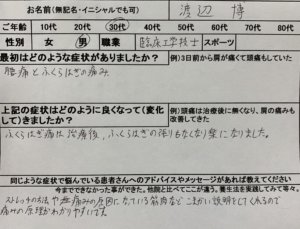 お名前(無記名・イニシャルでも可) 渡辺 博
ご年齢 10代 20代 30代 40代 50代 60代 70代 80代
性別 女 男 職業 臨床工学技士 スポーツ
最初はどのような症状がありましたか? 例)3日前から肩が痛くて頭痛もしていた
腰痛とふくらはぎの痛み。
上記の症状はどのように良くなって(変化 例)頭痛は治療後に無くなり、肩の痛みも
して)きましたか? 改善してきた
ふくらはぎ痛は治療後、ふくらはぎの張りもなくなり楽になりました。
同じような症状で悩んでいる患者さんへのアドバイスやメッセージがあれば教えてください
今までできなかった事ができた。他院と比べてここが違う。養生法を実践してみて等々。
ストレッチの方法や 痛みの原因になている筋肉など こまかい説明をしてくれるので
痛みの原理がわかりやすいです。